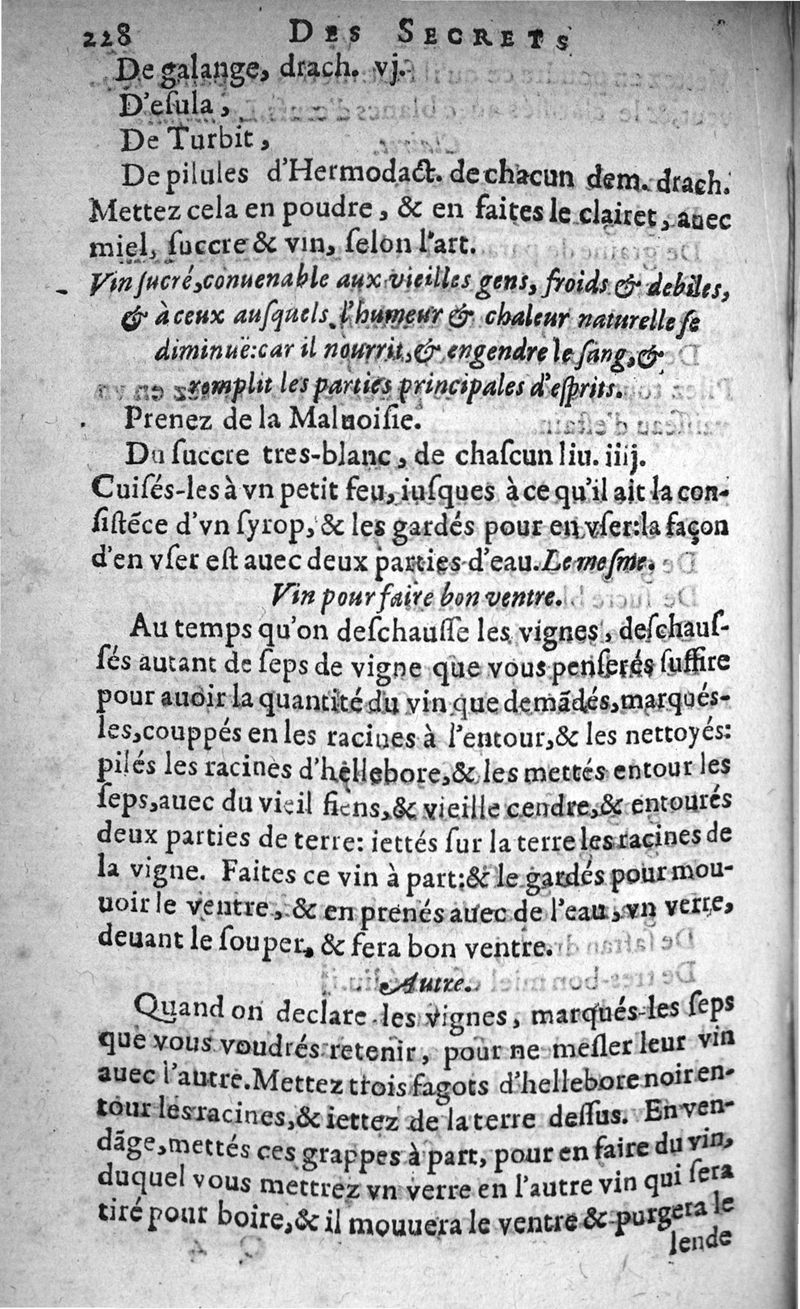 228 DES SECRETS
De galange, drach. vj.
D'eſula,
De Turbit,
De pilules d'Hermodact. de chacun dem. drach.
Mettez cela en poudre, & en faites le clairet, auec
miel, ſuccre & vin, ſelon l'art.
Vin ſucré, conuenable aux vieilles gens, froids & debiles,
& à ceux auſquels l'humeur & chaleur naturelle ſe
diminuë: car il nourrit, & engendre le ſang, &
remplit les parties principales d'eſprits.
Prenez de la Maluoiſie.
Du ſuccre tres-blanc, de chaſcun liu. iiij.
Cuiſés-les à vn petit feu, iuſques à ce qu'il ait la con-
ſiſtẽce d'vn ſyrop, & les gardés pour en vſer: la façon
d'en vſer eſt auec deux parties d'eau. Le meſme.
Vin pour faire bon ventre.
Au temps qu'on deſchauſſe les vignes, deſchauſ-
ſés autant de ſeps de vigne que vous penſerés ſuffire
pour auoir la quantité du vin que demãdés, marqués-
les, couppés en les racines à l'entour, & les nettoyés:
pilés les racines d'hellebore, & les mettés entour les
ſeps, auec du vieil fiens, & vieille cendre, & entourés
deux parties de terre: iettés ſur la terre les racines de
la vigne. Faites ce vin à part: & le gardés pour mou-
uoir le ventre, & en prenés auec de l'eau, vn verre,
deuant le ſouper, & fera bon ventre.
Autre.
Quand on declare les vignes, marqués-les ſeps
que vous voudrés retenir, pour ne meſler leur vin
auec l'autre. Mettez trois fagots d'hellebore noir en-
tour les racines, & iettez de la terre deſſus. En ven-
dãge, mettés ces grappes à part, pour en faire du vin,
duquel vous mettrez vn verre en l'autre vin qui ſera
tiré pour boire, & il mouuera le ventre & purgera le
lende